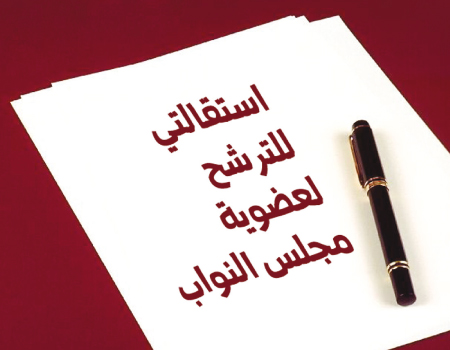 استقالتي
للترشح
لعضوية
مجلس النواب